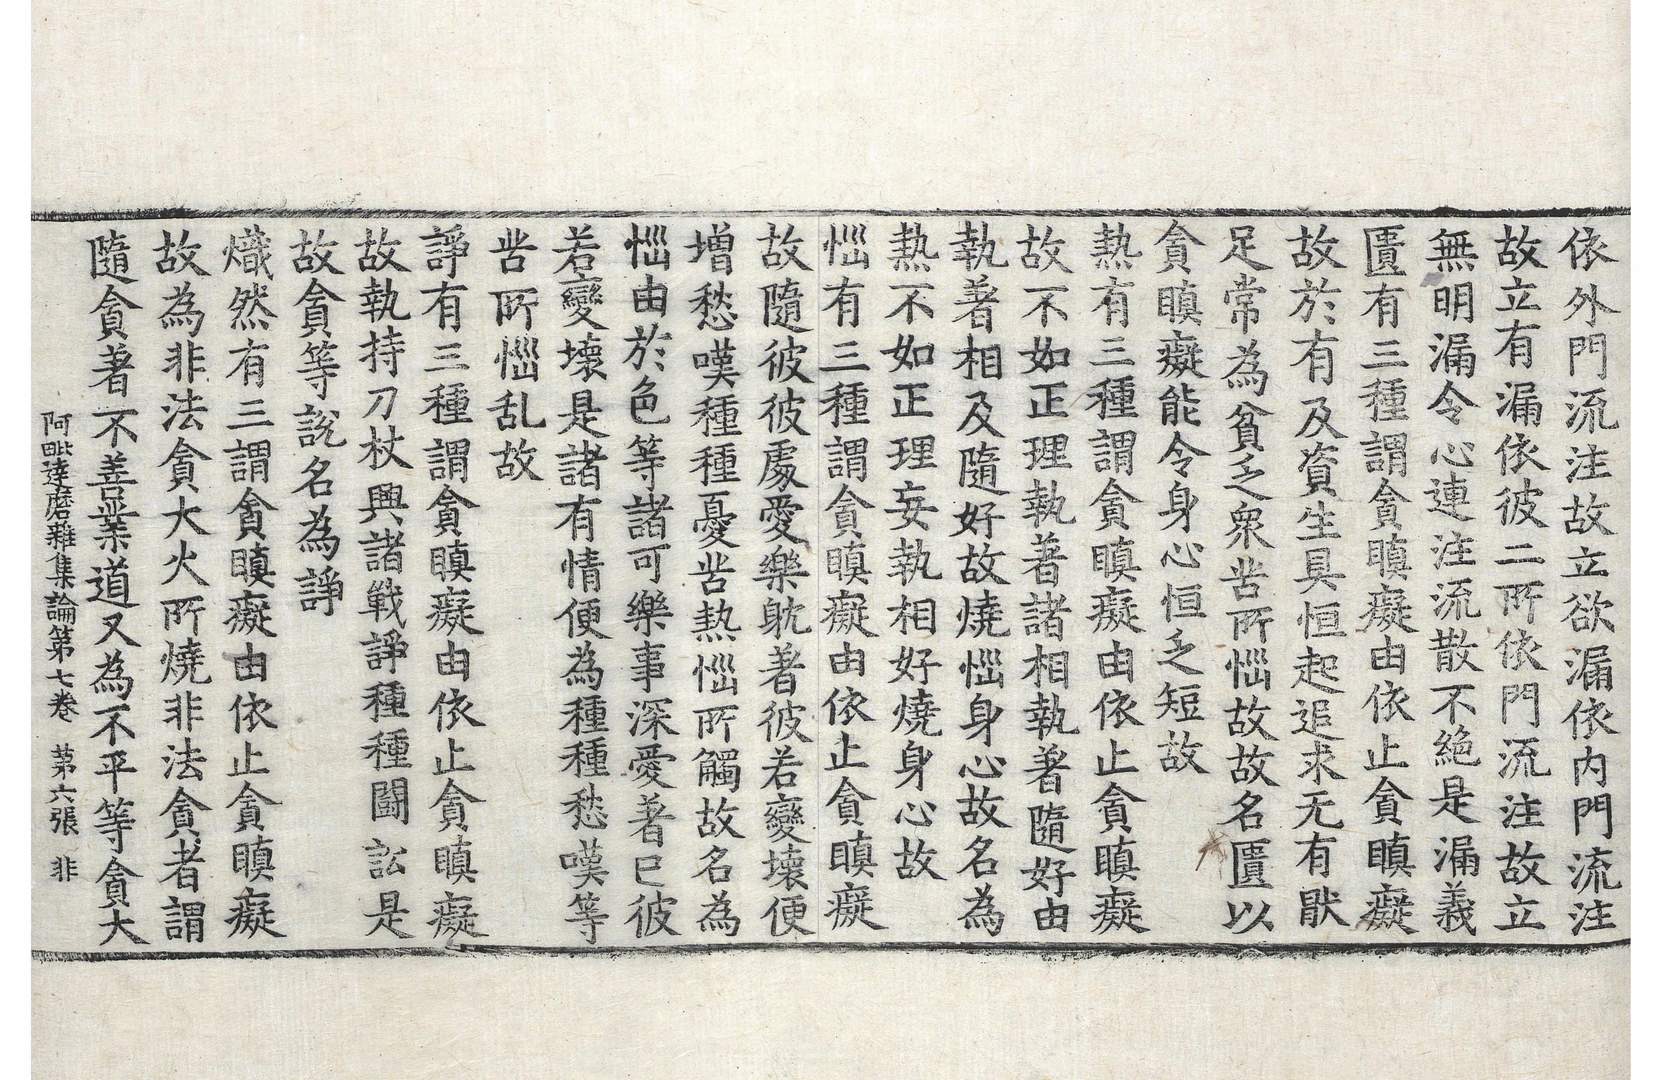 依外門流注故立欲漏依內門流注
故立有漏依彼二所依門流注故立
無明漏令心連注流散不絕是漏義
匱有三種謂貪瞋癡由依止貪瞋癡
故於有及資生具恒起追求无有猒
足常為貧乏衆苦所惱故故名匱以
貪瞋癡能令身心恒乏短故
熱有三種謂貪瞋癡由依止貪瞋癡
故不如正理執著諸相執著隨好由
執著相及隨好故燒惱身心故名為
熱不如正理妄執相好燒身心故
惱有三種謂貪瞋癡由依止貪瞋癡
故隨彼彼處愛樂躭著彼若變壞便
增愁嘆種種憂苦熱惱所觸故名為
惱由於色等諸可樂事深愛著已彼
若變壞是諸有情便為種種愁嘆等
苦所惱乱故
諍有三種謂貪瞋癡由依止貪瞋癡
故執持刀杖興諸戰諍種種鬪訟是
故貪等說名為諍
熾然有三謂貪瞋癡由依止貪瞋癡
故為非法貪大火所燒非法貪者謂
隨貪著不善業道又為不平等貪大
阿毗達磨雜集論第七卷　第六張　非